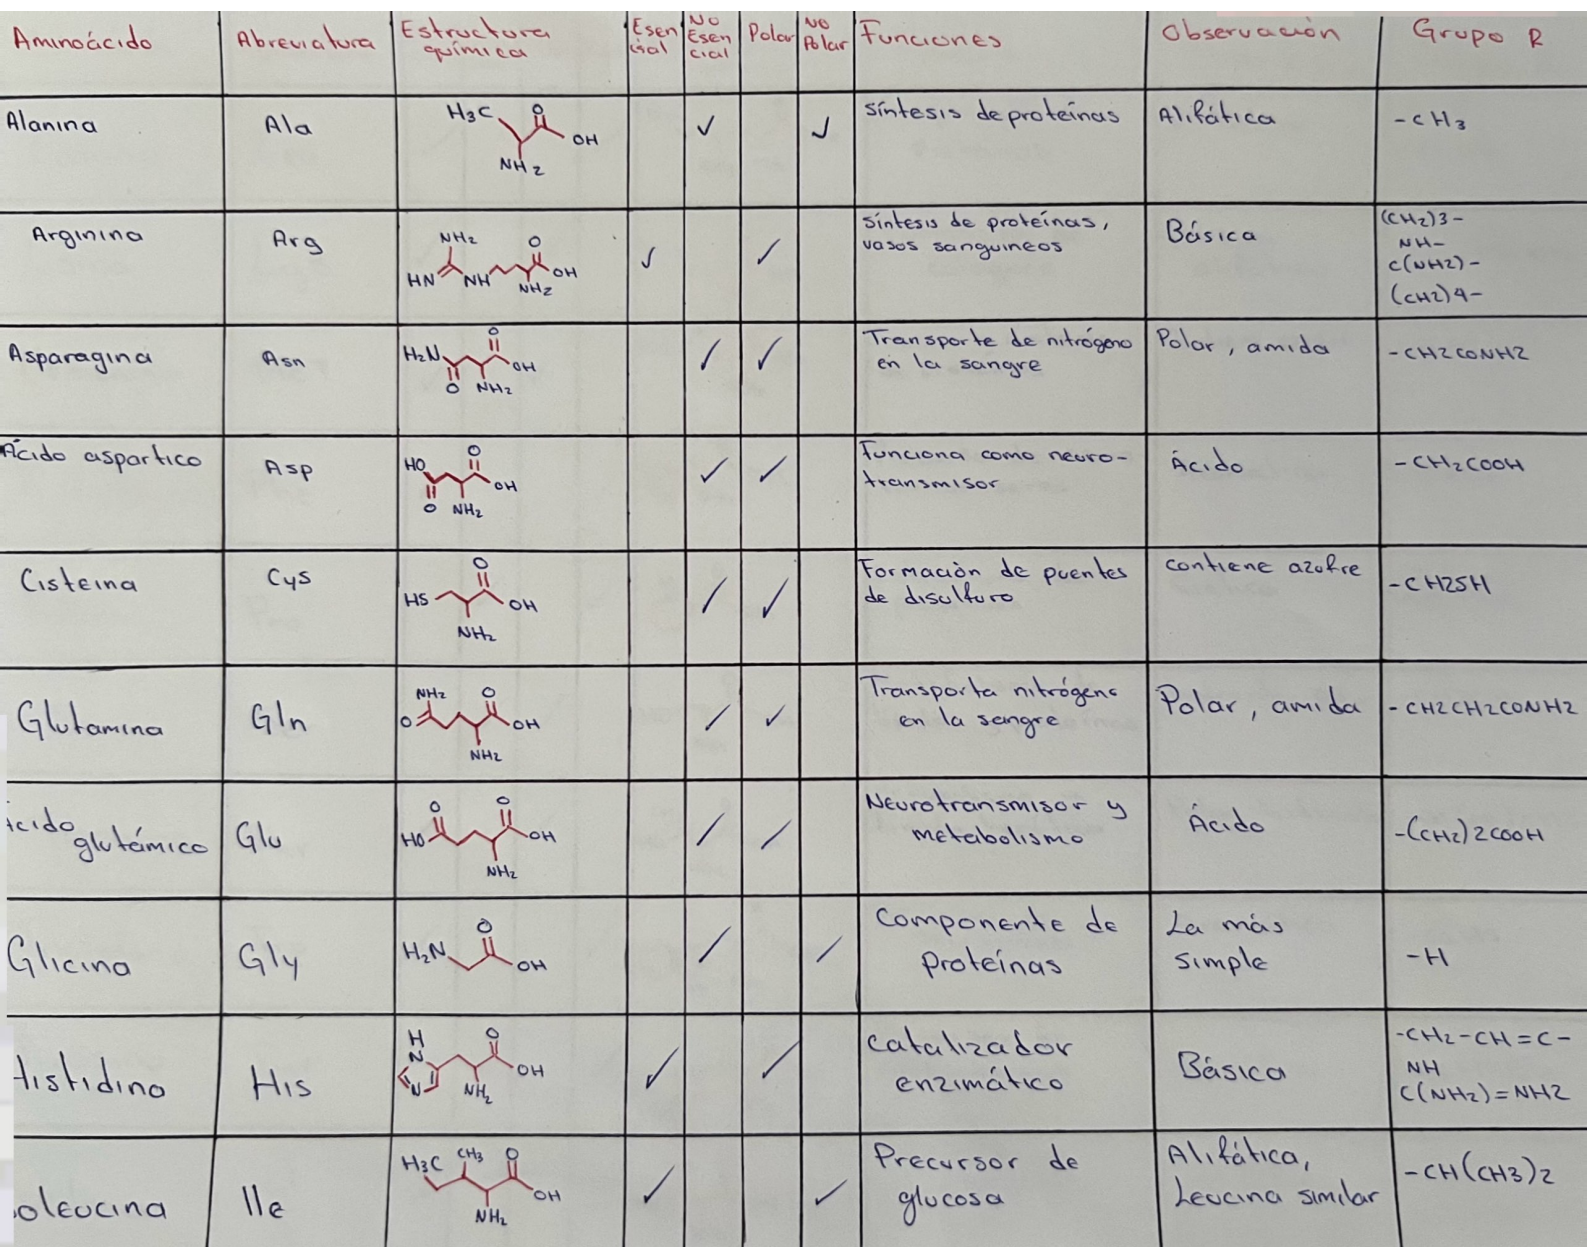 Aminoácido Abreviatura Estructura química Esen cial No Esen cial Polar No Polar Funciones Observación Grupo R
Alanina Ala H3C O OH NH2 ✓ ✓ síntesis de proteínas Alifática -CH3
Arginina Arg NH2 O HN NH OH NH2 ✓ ✓ síntesis de proteínas, vasos sanguineos Básica (CH2)3- NH- C(NH2)- (CH2)4-
Asparagina Asn H2N O OH O NH2 ✓ ✓ Transporte de nitrógeno en la sangre Polar, amida -CH2CONH2
Ácido aspartico Asp HO O OH O NH2 ✓ ✓ Funciona como neuro-transmisor Ácido -CH2COOH
Cisteina Cys HS O OH NH2 ✓ ✓ Formación de puentes de disulfuro contiene azufre -CH2SH
Glutamina Gln NH2 O O OH NH2 ✓ ✓ Transporta nitrógeno en la sangre Polar, amida -CH2CH2CONH2
cido glutámico Glu O O HO OH NH2 ✓ ✓ Neurotransmisor y metabolismo Ácido -(CH2)2COOH
Glicina Gly H2N O OH ✓ ✓ Componente de proteínas La más simple -H
Histidina His H N N O OH NH2 ✓ ✓ catalizador enzimático Básica -CH2-CH=C- NH C(NH2)=NH2
oleucina Ile H3C CH3 O OH NH2 ✓ ✓ Precursor de glucosa Alifática, Leucina similar -CH(CH3)2